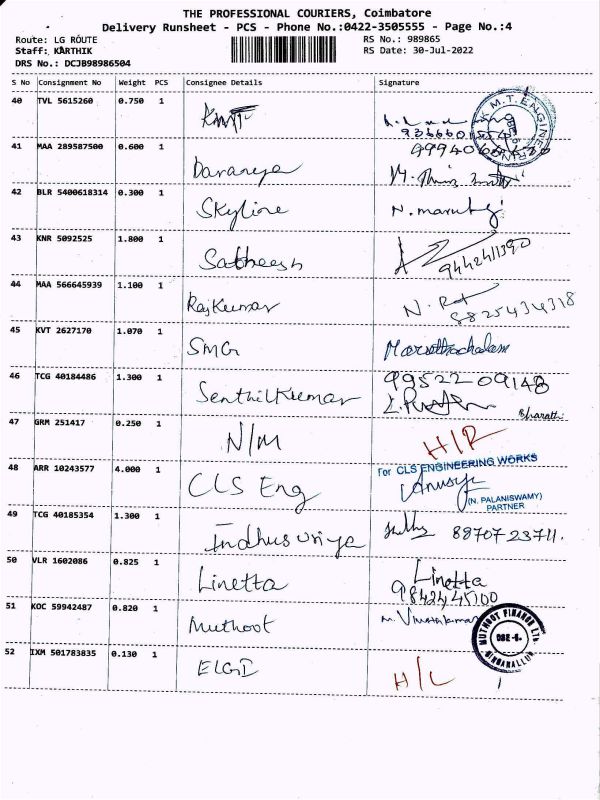 THE PROFESSIONAL COURIERS, Coimbatore
Delivery Runsheet - PCS - Phone No.:0422-3505555 - Page No.:4
Route: LG ROUTE
RS No.: 989865
Staff: KARTHIK
RS Date: 30-Jul-2022
DRS No.: DCJB98986504
S No Consignment No Weight PCS Consignee Details Signature
40 TVL 5615260 0.750 1 KMT
K.M.T. ENGINEERING
9366601554
41 MAA 289587500 0.600 1
42 BLR 5400618314 0.300 1 Skyline N. maruthi
43 KNR 5092525 1.800 1 Satheesh 9442411390
44 MAA 566645939 1.100 1 Rajkumar N. Raj
8825434318
45 KVT 2627170 1.070 1 SMG Maruthachalam
46 TCG 40184486 1.300 1 Senthilkumar 9952209148
Bharathi
47 GRM 251417 0.250 1 N/M H/R
48 ARR 10243577 4.000 1 CLS Eng
For CLS ENGINEERING WORKS
Anusya
(N. PALANISWAMY)
PARTNER
49 TCG 40185354 1.300 1 Indhusuriya 8870723711.
50 VLR 1602086 0.825 1 Linetta Linetta
9842445100
51 KOC 59942487 0.820 1 Muthoot
MUTHOOT FINANCE LTD
SINGANALLUR
52 IXM 501783835 0.130 1 ELGI H/L